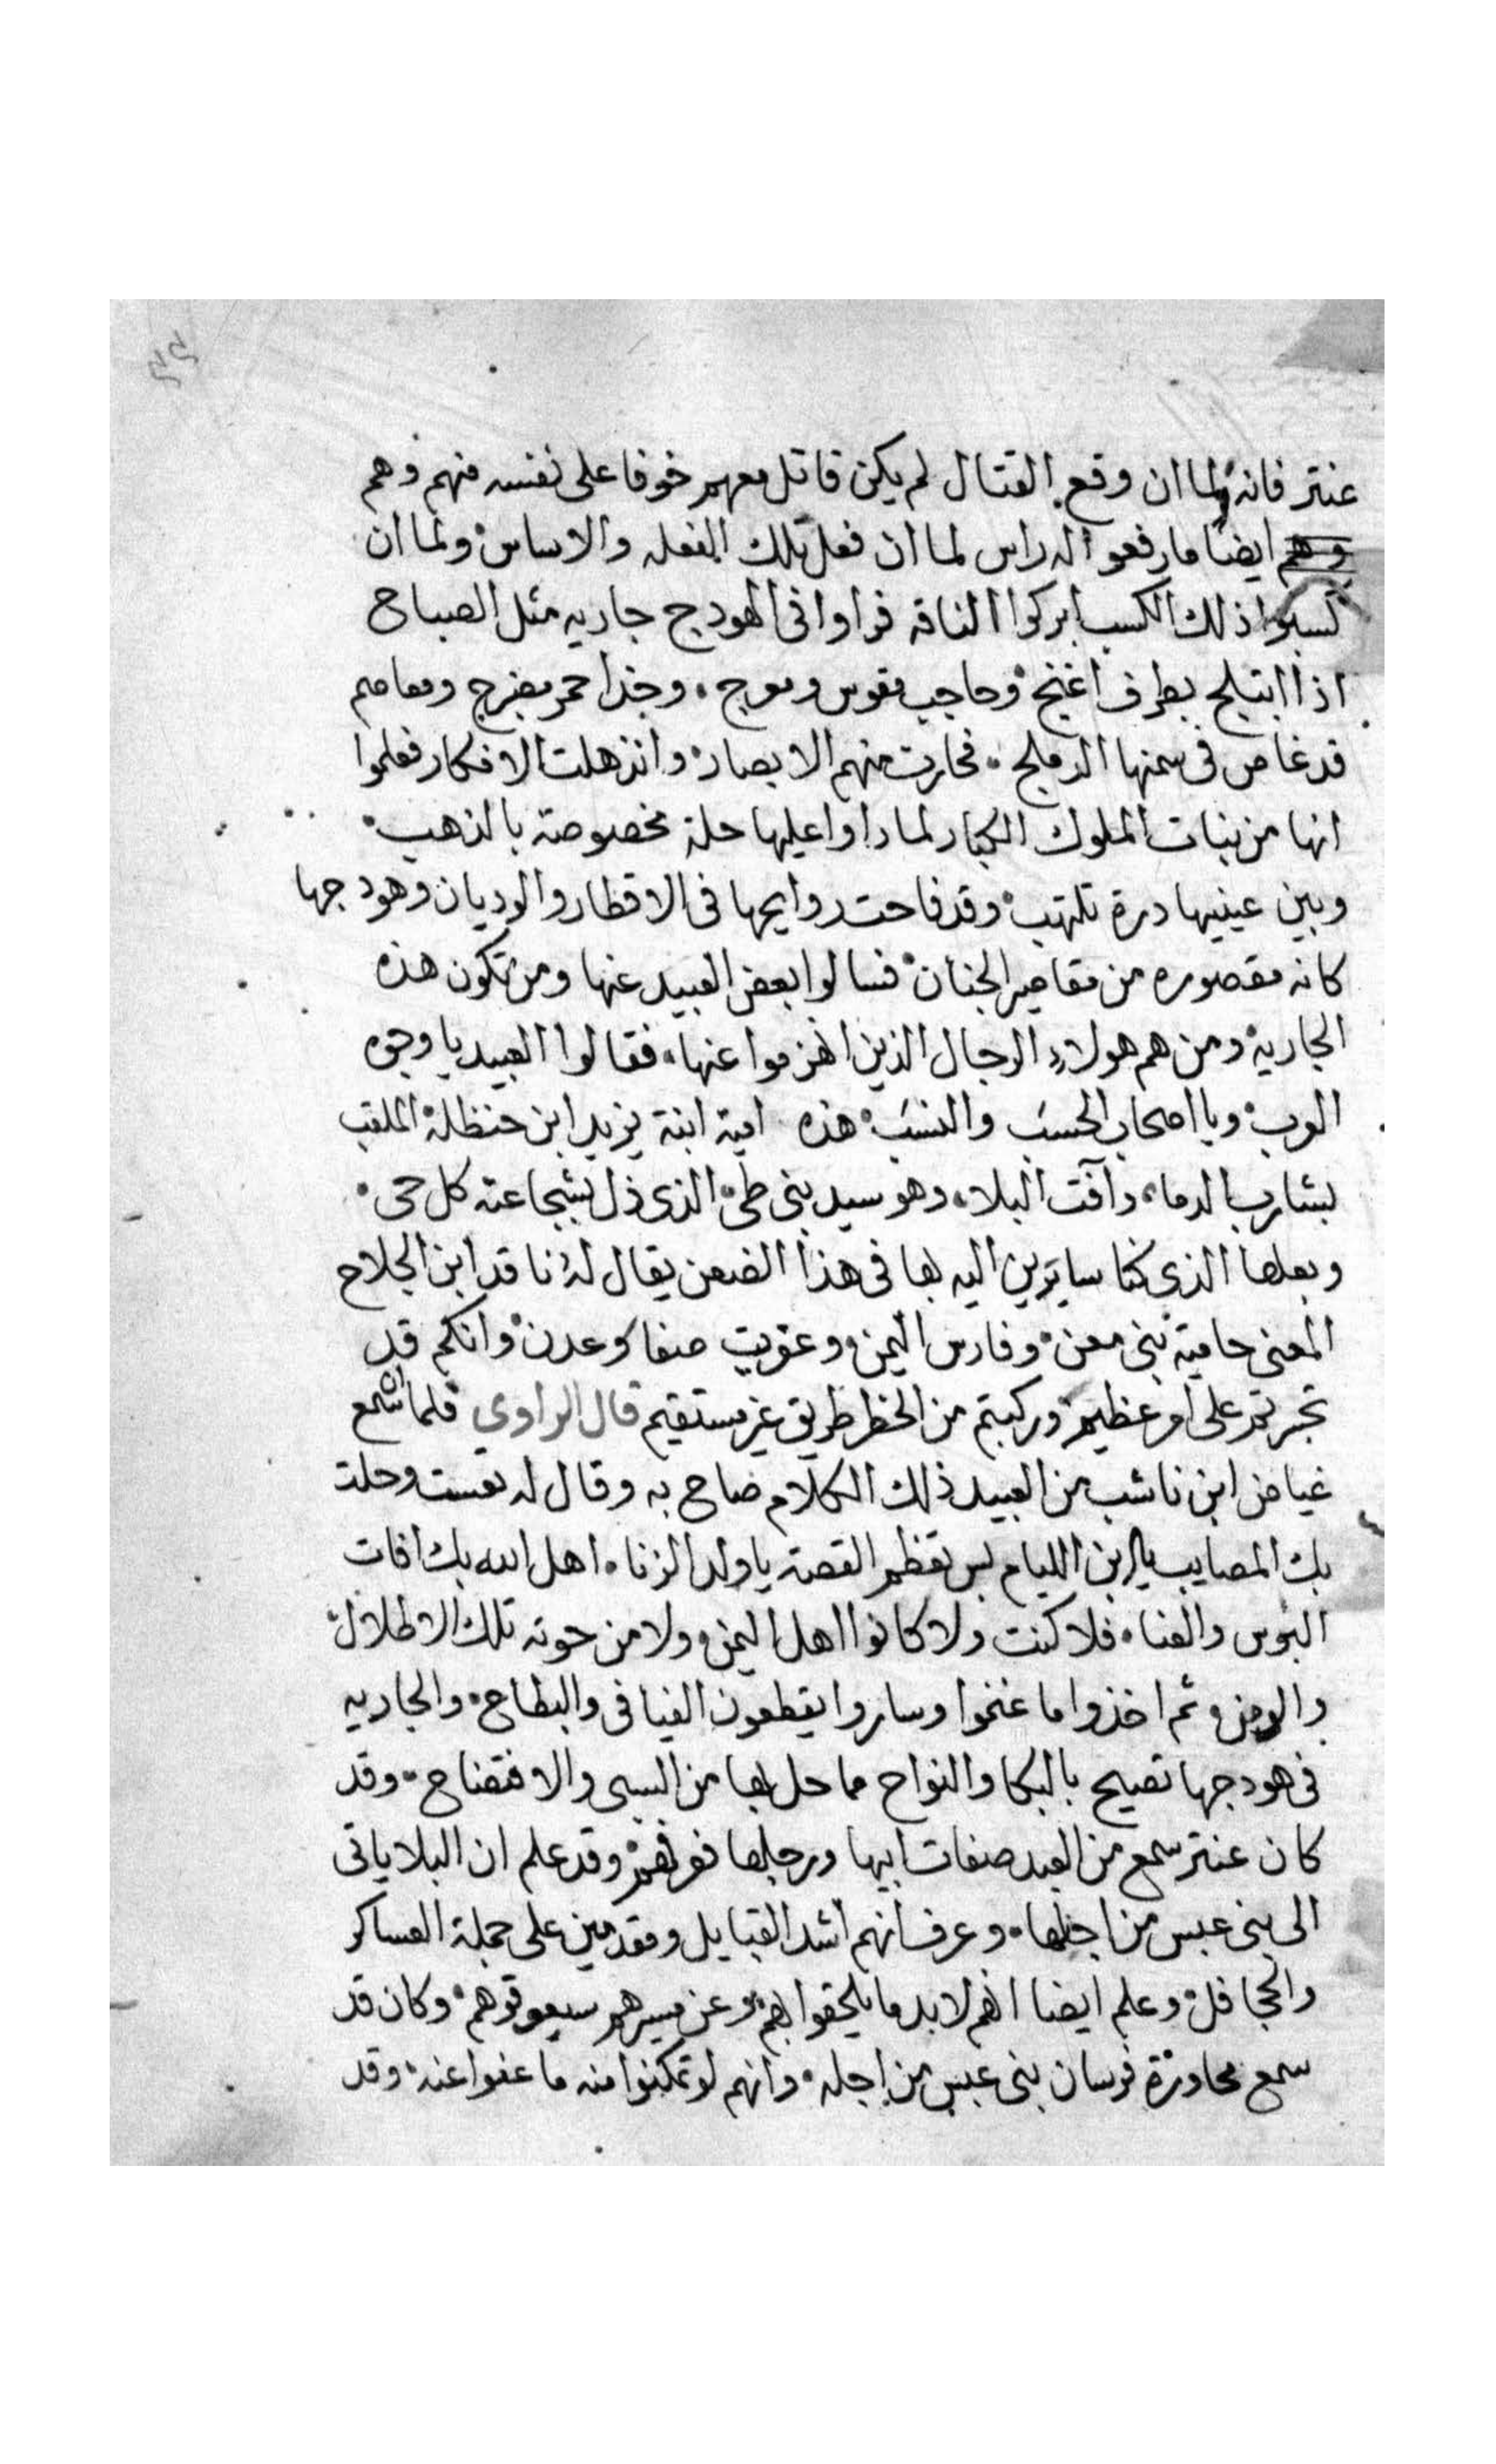 عنتر فانه لما ان وقع القتال لم يكن قاتل معهم خوفا على نفسه منهم وهم
وهم ايضا ما رفعوا اله راس لما ان فعل تلك الفعله والاساس ولما ان
كسبوا ذلك الكسب ابركوا الناقه فراوا فى الهودج جاريه مثل الصباح
اذا ابتلج بطرف اغنج وحاجب مقوس ومعوج وخذ احمر بضرج ومعاصم
قد غاص فى سمنها الدملج فحارت منهم الابصار وانذهلت الافكار فعلموا
انها من بنات الملوك الكبار لما راوا عليها حلة مخصوصة بالذهب
وبين عينيها درة تلتهب وقد فاحت روايحها فى الاقطار والوديان وهودجها
كانه مقصوره من مقاصير الجنان فسالوا بعض العبيد عنها ومن تكون هذه
الجارية ومن هم هولاء الرجال الذين انهزموا عنها فقالوا العبيد يا وجوه
العرب ويا اصحاب الحسب والنسب هذه امية ابنة يزيد ابن حنظلة الملقب
بشارب الدماء وآفت البلاء وهو سيد بنى طى الذى ذل بشجاعته كل حى
وبعلها الذى كنا سايرين اليه بها فى هذا الضعن يقال له ناقد ابن الجلاح
المعنى حامية بنى معن وفارس اليمن وعفريت صنعا وعدن وانكم قد
تجريتم على امر عظيم وركبتم من الخطر طريق غير مستقيم قال الراوى فلما ان سمع
غياض ابن ناشب من العبيد ذلك الكلام صاح به وقال له تعست وحلت
بك المصايب يا ابن الليام بس تعظم القصة يا ولد الزنا اهل الله بك افات
البوس والعنا فلا كنت ولا كانوا اهل اليمن ولا من حوته تلك الاطلال
والدمن ثم اخذوا ما غنموا وساروا يقطعون الفيافى والبطاح والجاريه
فى هودجها تصيح بالبكا والنواح مما حل بها من السبى والافتضاح وقد
كان عنتر سمع من العبد صفات ابيها ورجلها فعرفهم وقد علم ان البلا ياتى
الى بنى عبس من اجلها وعرف انهم اشد القبايل ومقدمين على جملة العساكر
والجحافل وعلم ايضا انهم لا بد ما يلحقوا بهم وعن مسيرهم سيعوقوهم وكان قد
سمع محاورة فرسان بنى عبس من اجله وانهم لو تمكنوا منه ما عفوا عنه وقد